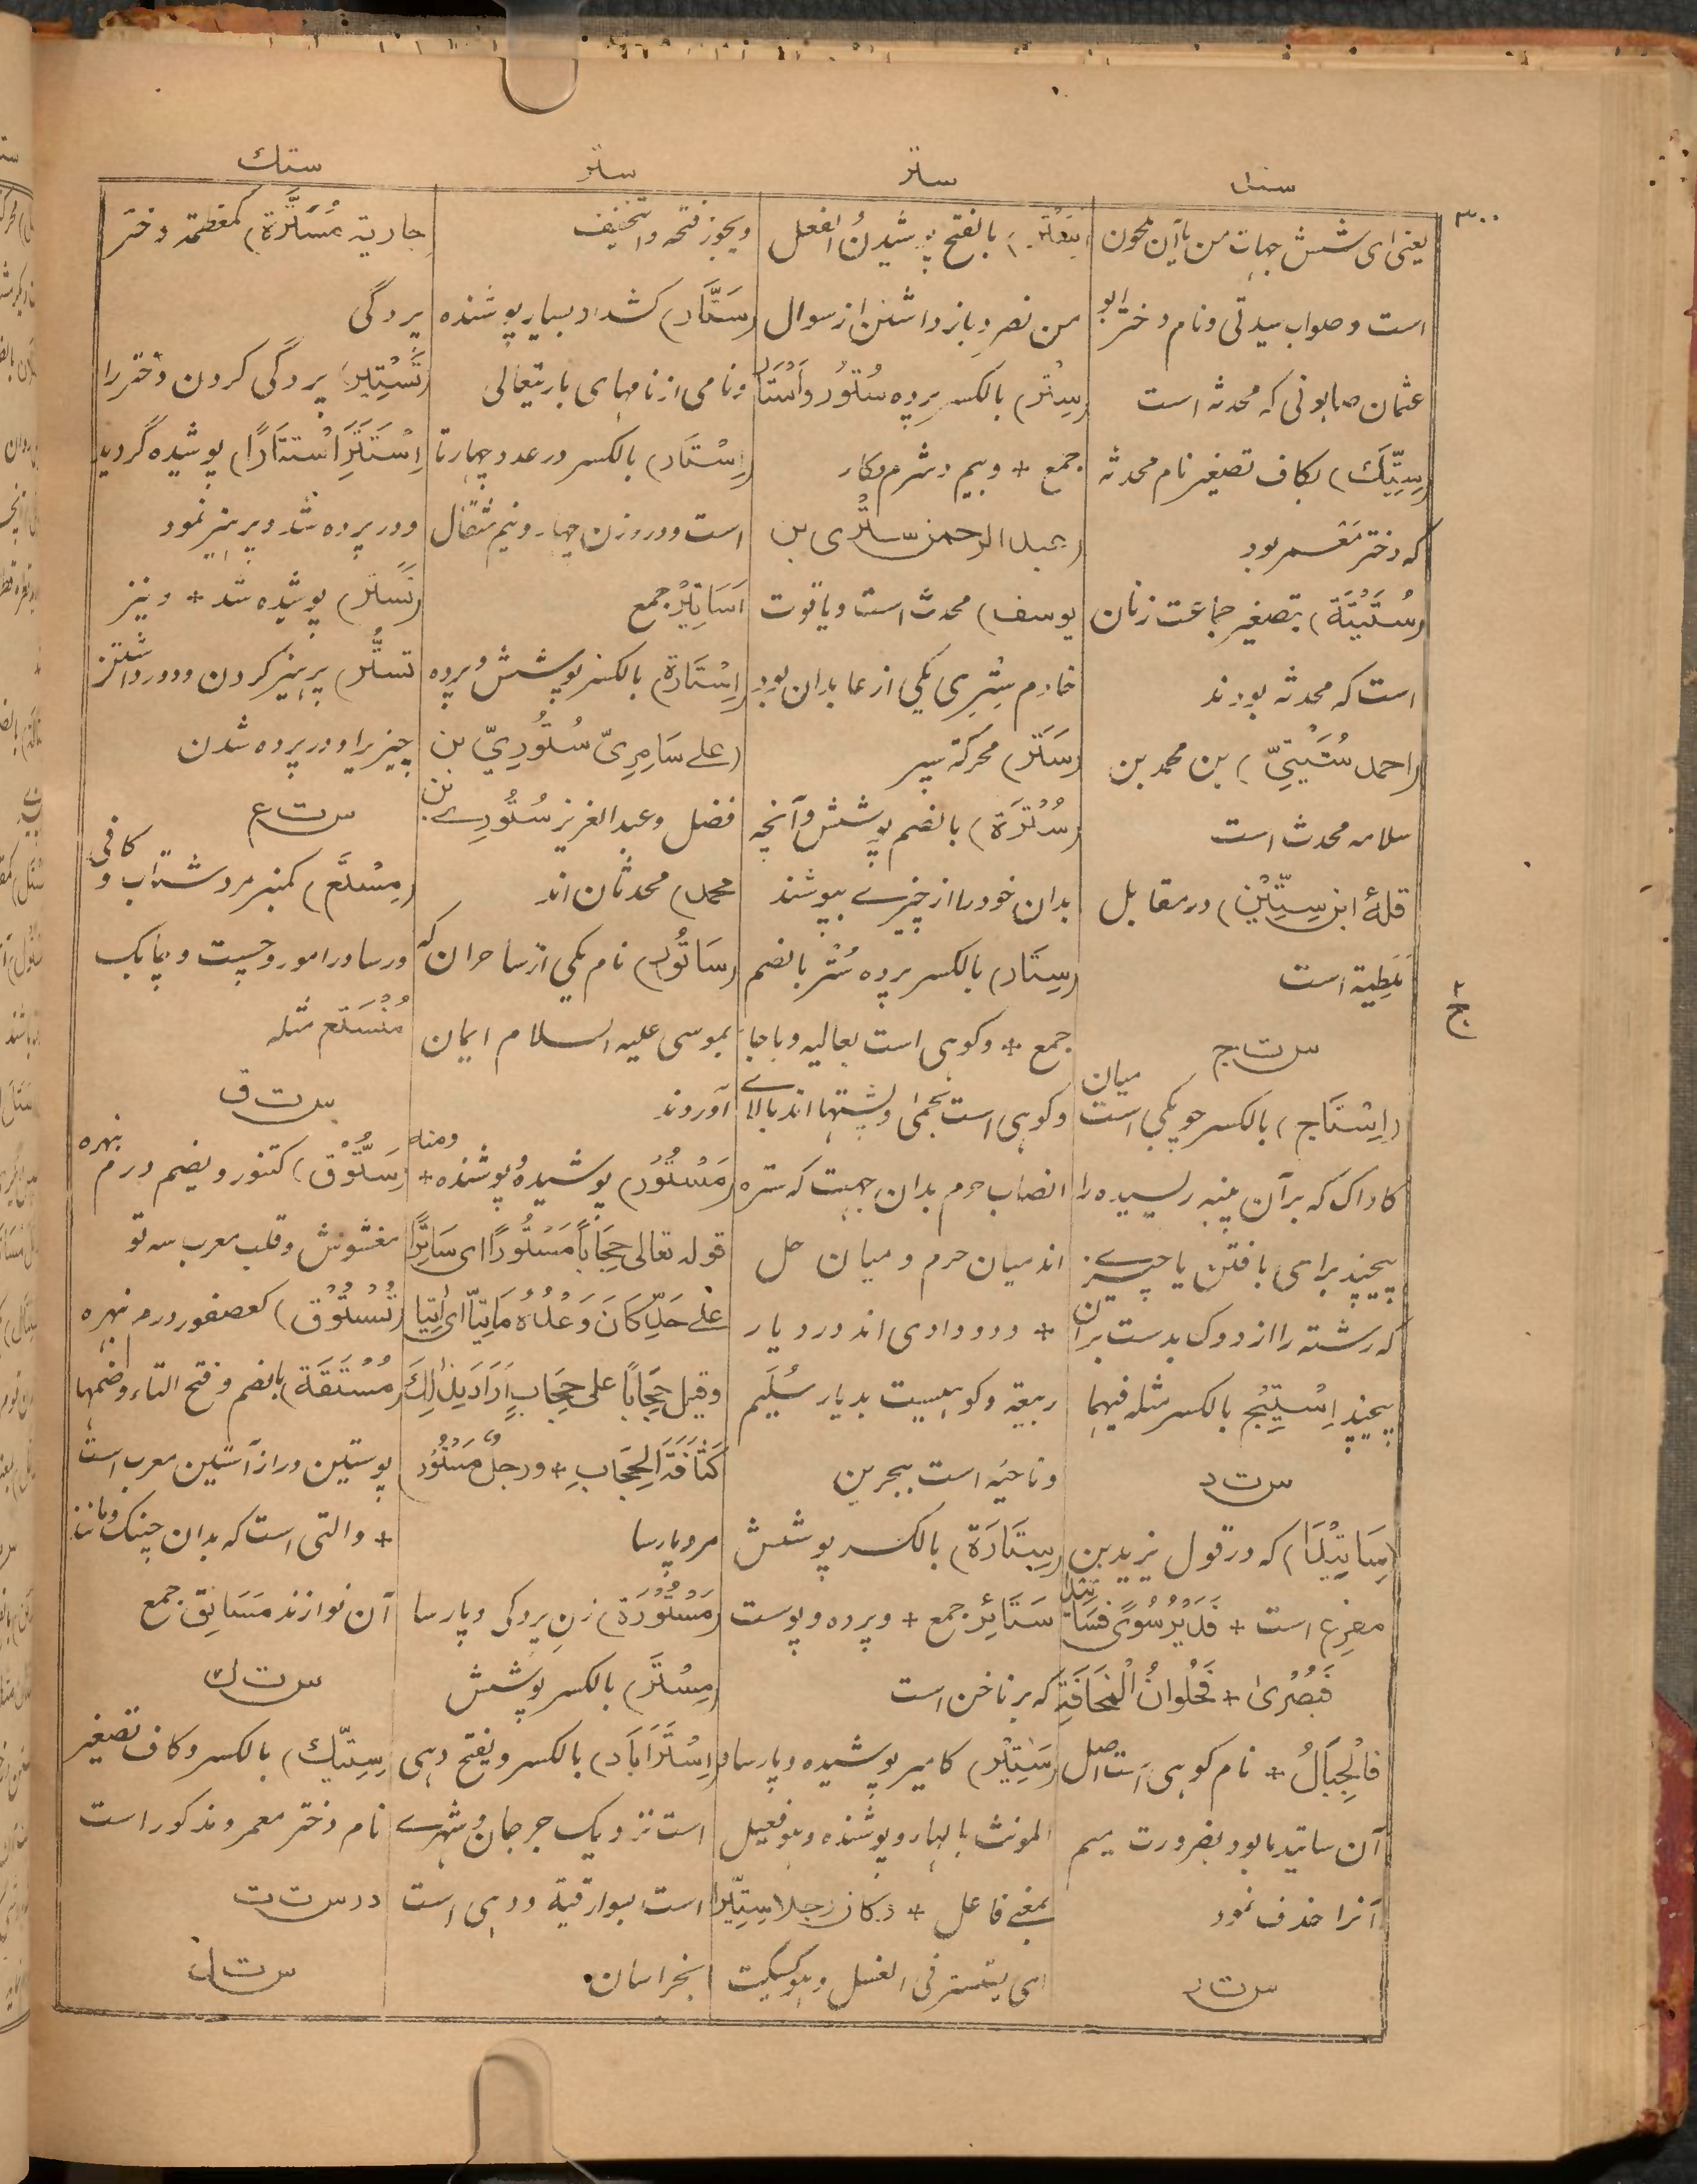 ستد
ستر
ستر
ستك
۳۰۰
یعنی ای شش جهات من یا آین ملحون
است و صواب سیدتی و نام دختر ابو
عثمان صابونی که محدثه است
(سِتِّیْك) بکاف تصغیر نام محدثه
که دختر معمر بود
(سُتَیْتَة) بتصغیر جماعت زنان
است که محدثه بودند
(احمد سُتَیْتِیّ) بن محمد بن
سلامه محدث است
قلعۀ ابن سِتِّیْن) در مقابل
مَلَطِیَة است
ج
س ت ج
(اِسْتَاج) بالکسر چوبکی است میان
کاواک که بر آن پنبه ریسیده را
پیچند برای بافتن یا چیزے
که رشته را از دوک بدست بر آن
پیچند اِسْتِیْج بالکسر مثله فیهما
س ت د
(سَاتِیْدَمَا) که در قول یزید بن
مفرغ است + فَدَیْرُ سُوًی فَسَاتِیْدَ
فَبُصْرٰی + فَحُلْوَانُ الْمَخَافَةِ
فَالْجِبَالُ + نام کوهی است اصل
آن ساتیدما بود بضرورت میم
آنرا حذف نمود
س ت ر
(سَتْر) بالفتح پوشیدن والفعل
من نصر و باز داشتن از سوال
(سِتْر) بالکسر پرده سُتُوْر و اَسْتَار
جمع + و بیم و شرم و کار
(عبد الرحمن سِتْرِی بن
یوسف) محدث است و یاقوت
خادم سِتْرِی یکی از عابدان بود
(سَتَر) محرکة سپر
(سُتْرَة) بالضم پوشش و آنچه
بدان خود را از چیزے بپوشند
(سِتَار) بالکسر پرده سُتُر بالضم
جمع + و کوهی است بعالیه و باجا
و کوهی است بحمیٰ و پشتها اند بالاے
انصاب حرم بدان جهت که ستره
اند میان حرم و میان حل
+ و دو وادی اند در دیار
ربیعة و کوهیست بدیار سُلَیم
و ناحیه است ببحرین
(سِتَارَة) بالکسر پوشش
سَتَائِر جمع + و پرده و پوست
که بر ناخن است
(سَتِیْر) کامیر پوشیده و پارسا
المونث بالهاء و پوشنده و هو فعیل
بمعنے فاعل + و کان رجلا سِتِّیْرا
ای یتستر فی الغسل و هو کسکیت
و یجوز فتحه والتخفیف
(سَتَّار) کشداد بسیار پوشنده
و نامی از نامهای باریتعالی
(اِسْتَار) بالکسر در عدد چهار تا
است و در وزن چهار و نیم مثقال
اَسَاتِیْر جمع
(اِسْتَارَة) بالکسر پوشش و پرده
(علے سَامِرِیّ سُتُوْرِیّ بن
فضل و عبد العزیز سُتُوْرِے بن
محمد) محدثان اند
(سَاتُوْر) نام یکی از ساحران که
بموسی علیه السلام ایمان
آوردند
(مَسْتُوْر) پوشیده و پوشنده + ومنه
قوله تعالی حِجَاباً مَسْتُوْراً ای سَاتِرًا
علٰے حَدِّ کَانَ وَعْدُهُ مَاتِیّاً ای اٰتِیًا
وقیل حِجَاباً علی حِجَابٍ اَرَادَ بِذٰلِكَ
کَثَافَةَ الحِجَابِ + ورجلٌ مَسْتُوْر
مرد پارسا
(مَسْتُوْرَة) زن پردگی و پارسا
(مِسْتَر) بالکسر پوشش
(اِسْتَرَابَاد) بالکسر و یفتح دهی
است نزدیک جرجان و شهرے
است بسوارقیة و دهی است
بخراسان
جاریة مُسَتَّرَة) کمعظمة دختر
پردگی
(تَسْتِیْر) پردگی کردن دختر را
اِسْتَتَرَ اِسْتِتَارًا) پوشیده گردید
و در پرده شد و پرهیز نمود
(تَسَتَّر) پوشیده شد + و نیز
تستُّر) پرهیز کردن و دور داشتن
چیز یرا و در پرده شدن
س ت ع
(مِسْتَع) کمنبر مرد شتاب و کافی
و رسا در امور و چست و چابک
مُنْسَتِع مثله
س ت ق
(سَتُّوْق) کتنور و بضم درم نبهره
مغشوش و قلب معرب سه تو
(تُسْتُوْق) کعصفور درم نبهره
(مُسْتَقَة) بالضم و فتح التاء و ضمها
پوستین دراز آستین معرب است
+ و التی است که بدان چنگ و مانند
آن نوازند مَسَاتِق جمع
س ت ك
سِتِّیْك) بالکسر و کاف تصغیر
نام دختر معمر و مذکور است
در س ت ت
س ت ل